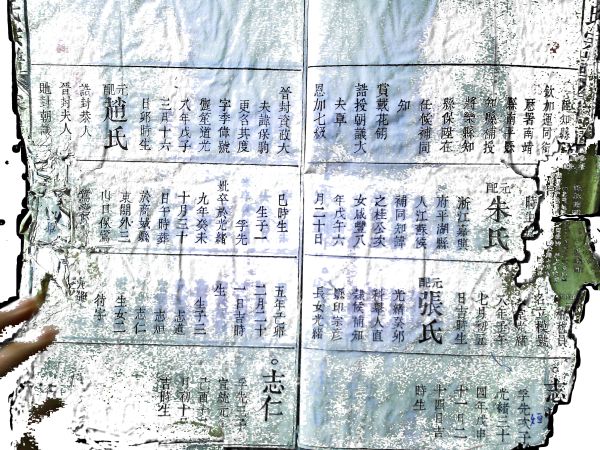 欽加運同銜
歷署南靖
縣南平縣
知縣補授
將樂縣知
縣保陞在
任候補同
知
賞戴花翎
誥授朝議大
夫享
恩加七級
晉封資政大
夫諱葆駒
更名其度
字季偉號
磐笙道光
八年戊子
三月十六
日卯時生
元配趙氏
誥封恭人
晉封夫人
貤封朝議
時生
元配朱氏
浙江嘉興
府平湖縣
人江蘇候
補同知諱
之桂公次
女咸豐八
年戊午六
月二十日
巳時生
生子一
孚先
妣卒於光緒
九年癸未
十月三十
日午時葬
於商城縣
東關外三
光緒
八年壬午
七月初五
日吉時生
元配張氏
光緒癸卯
科舉人直
隸候補知
縣印宗彥
長女光緒
五年己卯
二月二十
一日吉時
生
生子三
志道
志恒
志仁
生女二
待字
志
孚先次子
光緒三十
四年戊申
十一月二
十四日吉
時生
志仁
孚先三子
宣統元
己酉十
月初十
吉時生